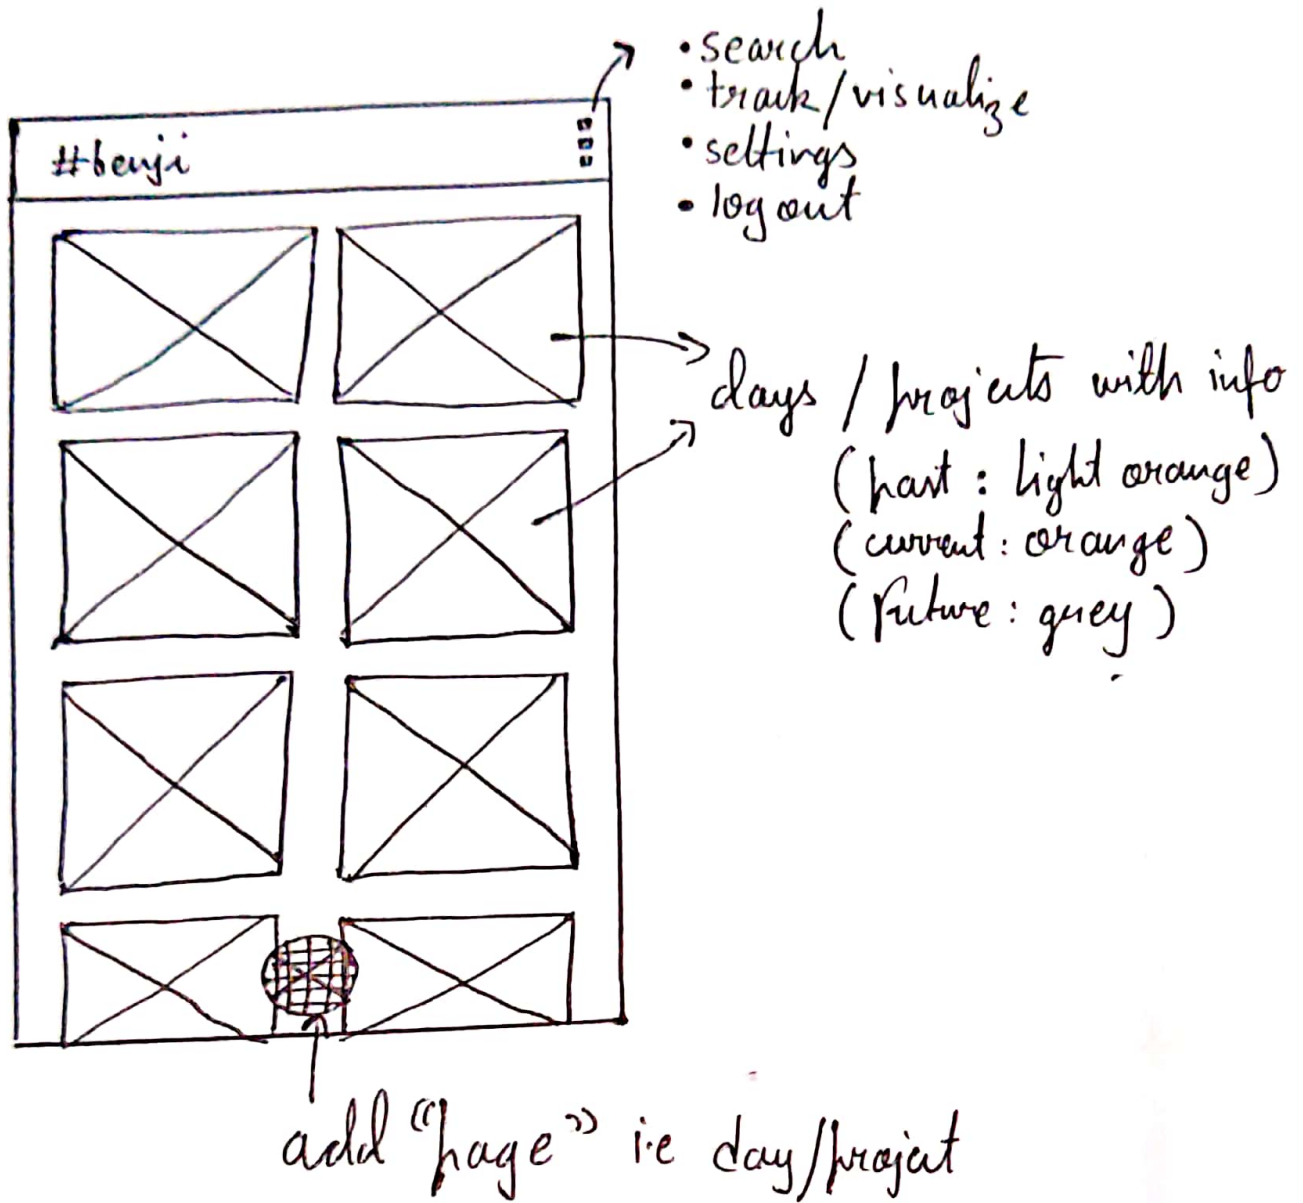 • search
• track/visualize
• settings
• log out
#benji
days / projects with info
(past : light orange)
(current : orange)
(future : grey)
add "page" i.e day/project